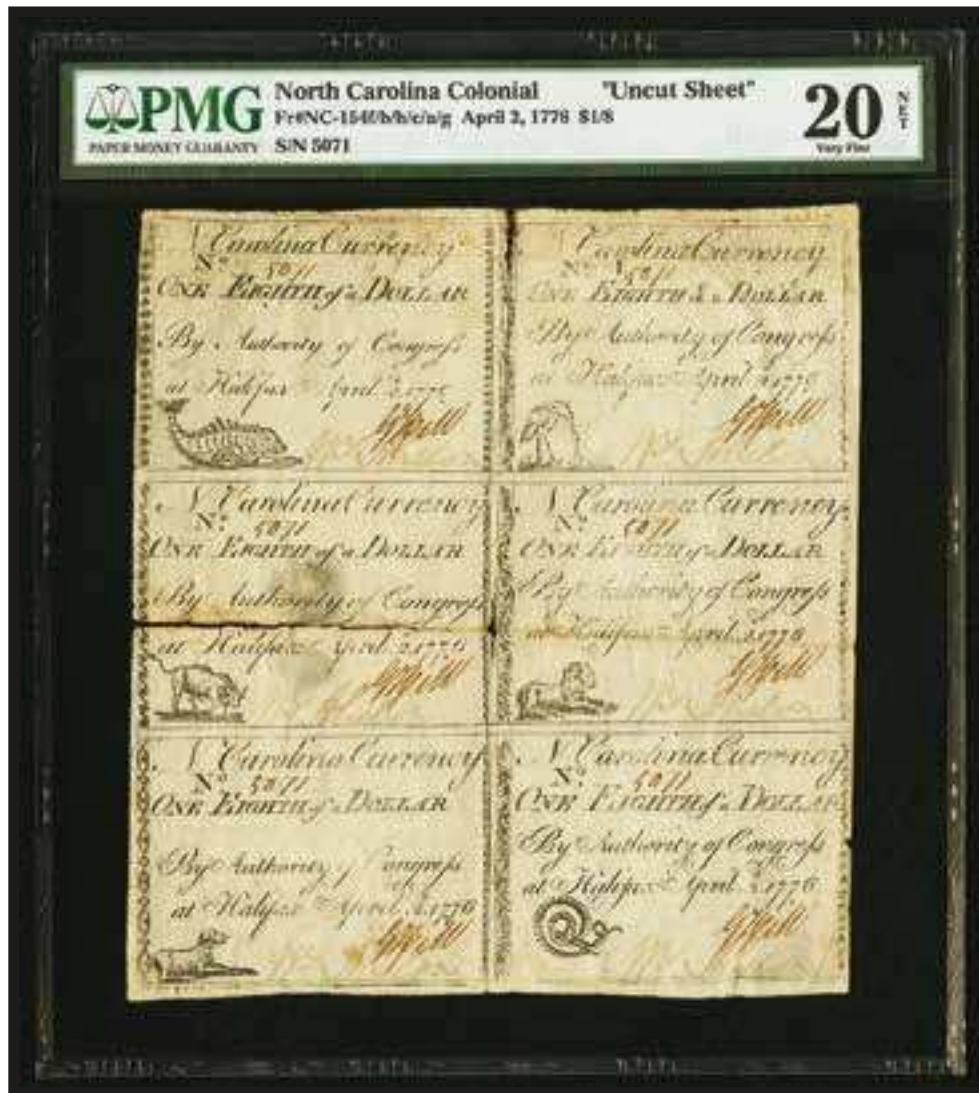 PMG
PAPER MONEY GUARANTY
North Carolina Colonial "Uncut Sheet"
Fr#NC-154f/b/h/c/a/g April 2, 1776 $1/8
S/N 5071
20
NET
Very Fine
N Carolina Currency
No. 5071
ONE EIGHTH of a DOLLAR
By Authority of Congress
at Halifax April 2, 1776
N Carolina Currency
No. 5071
ONE EIGHTH of a DOLLAR
By Authority of Congress
at Halifax April 2, 1776
N Carolina Currency
No. 5071
ONE EIGHTH of a DOLLAR
By Authority of Congress
at Halifax April 2, 1776
N Carolina Currency
No. 5071
ONE EIGHTH of a DOLLAR
By Authority of Congress
at Halifax April 2, 1776
N Carolina Currency
No. 5071
ONE EIGHTH of a DOLLAR
By Authority of Congress
at Halifax April 2, 1776
N Carolina Currency
No. 5071
ONE EIGHTH of a DOLLAR
By Authority of Congress
at Halifax April 2, 1776